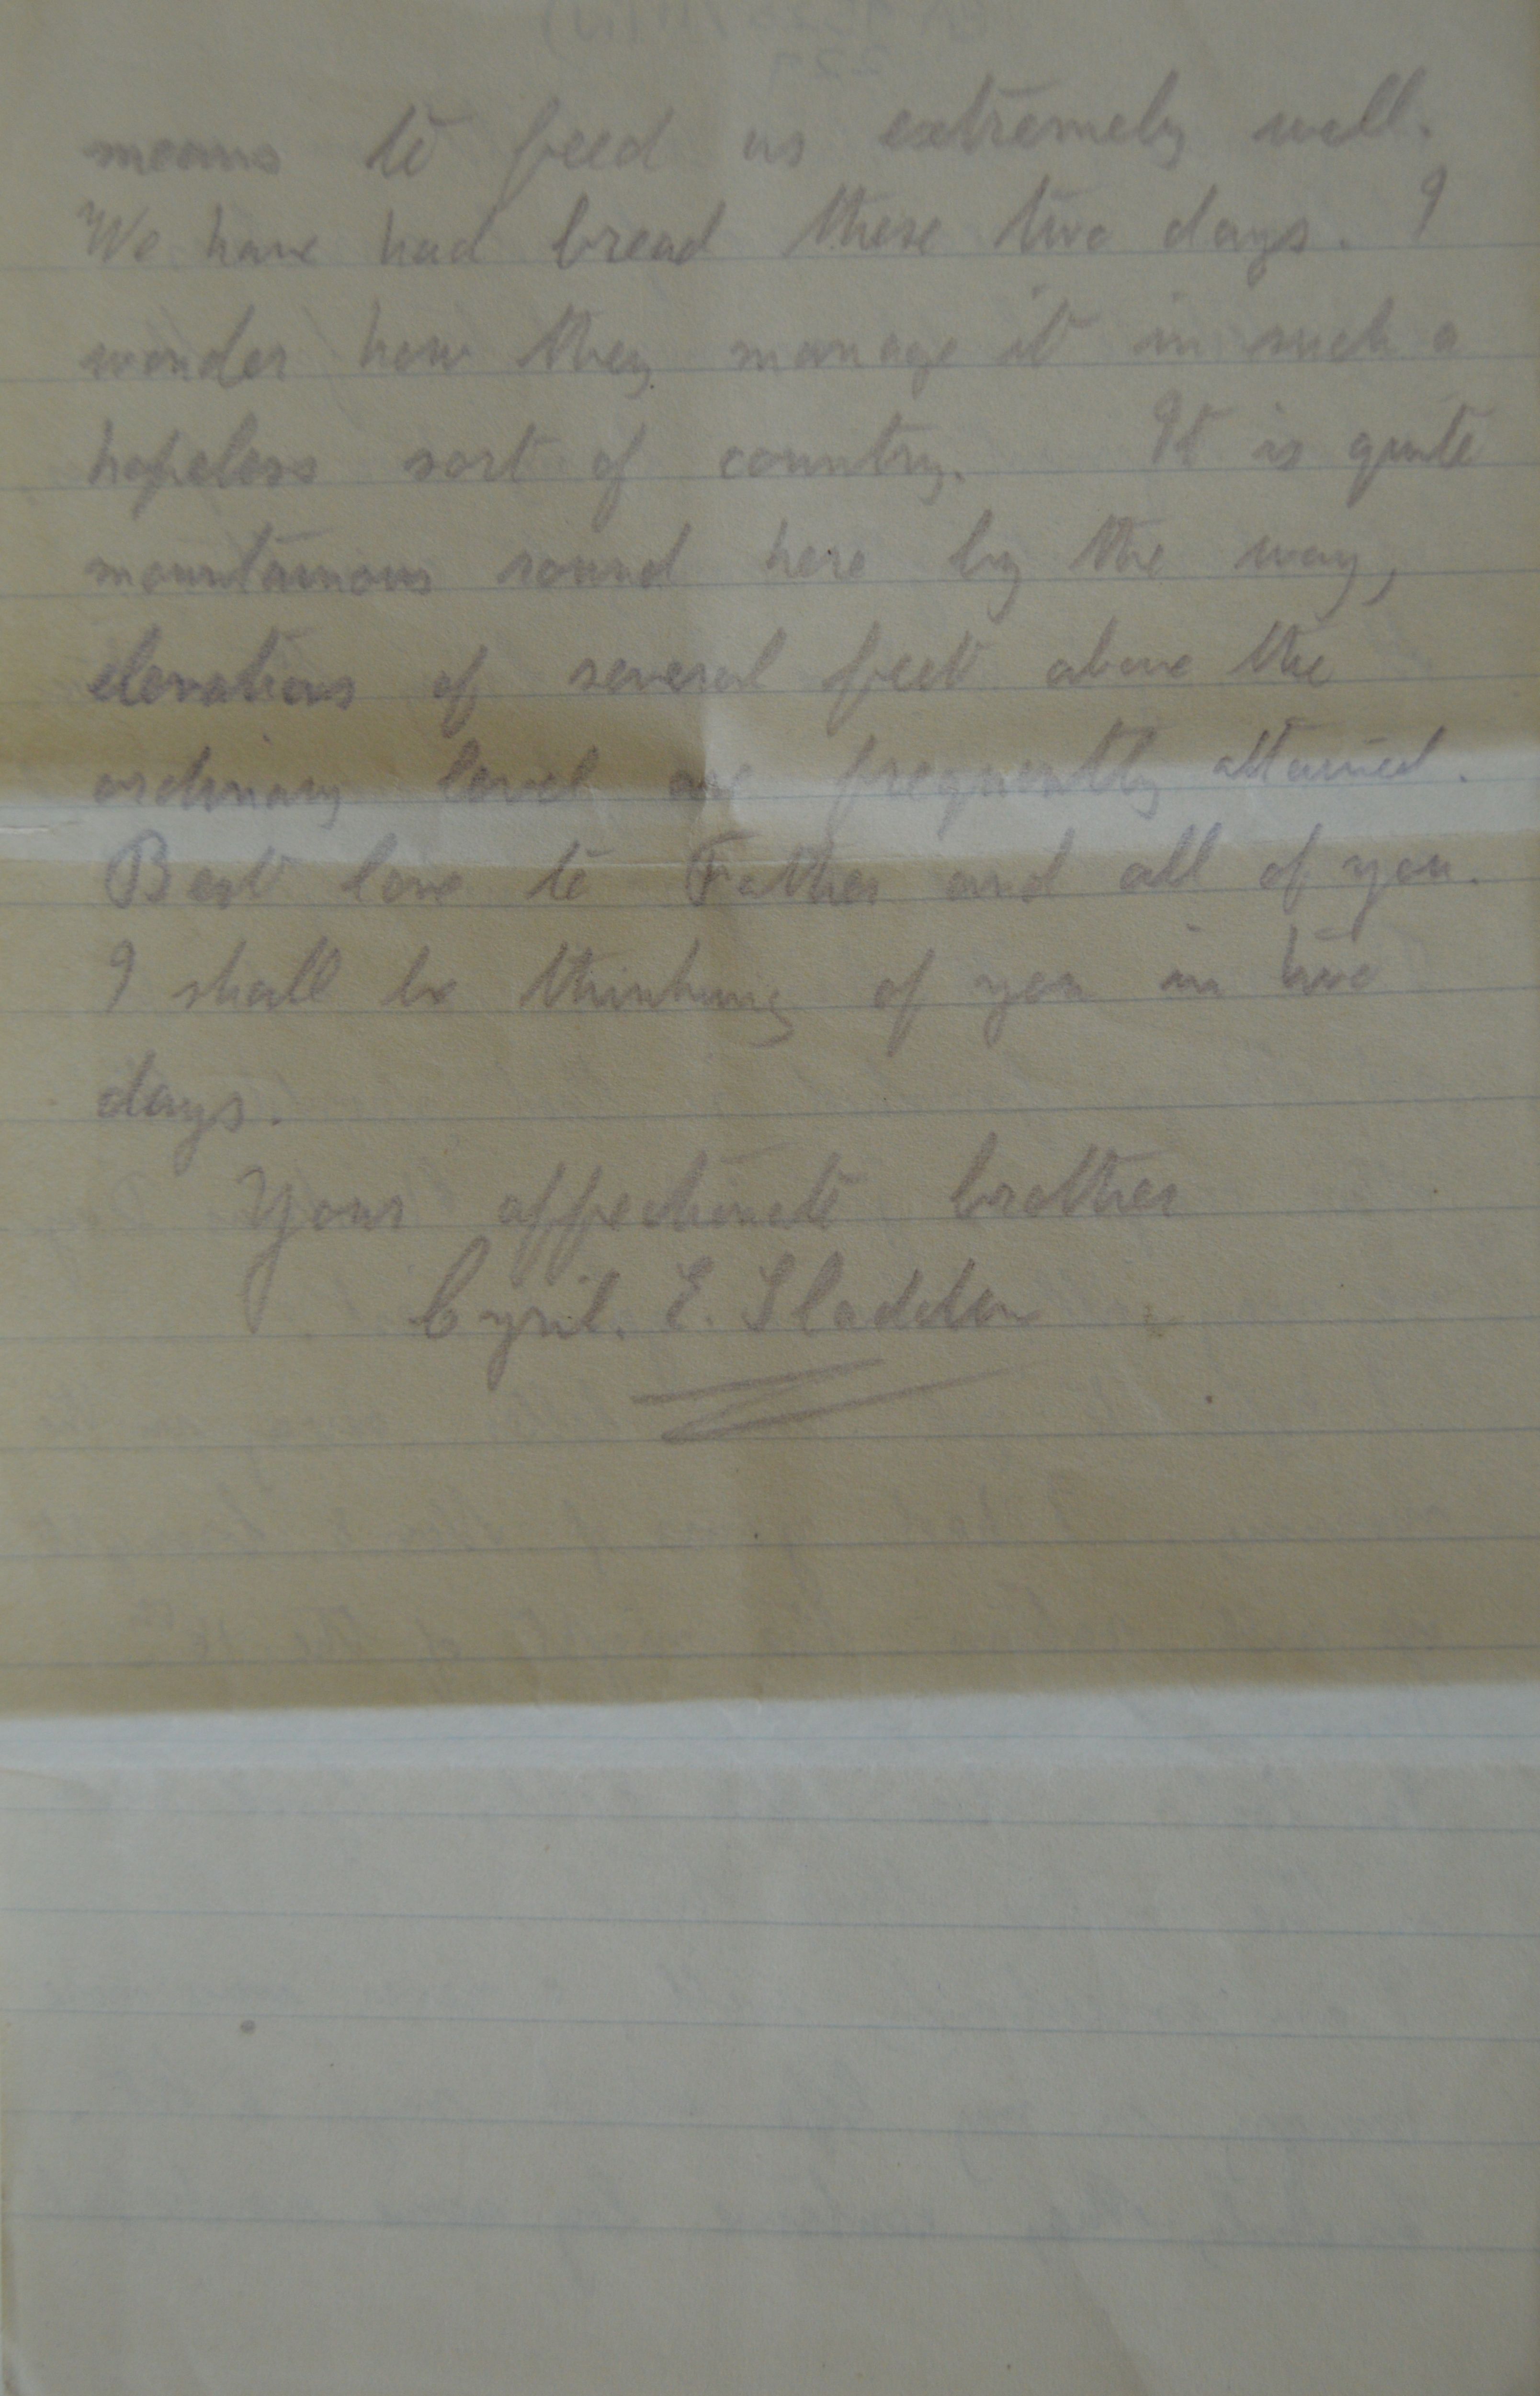 means to feed us extremely well.
We have had bread these two days. I
wonder how they manage it in such a
hopeless sort of country. It is quite
mountainous round here by the way,
elevations of several feet above the
ordinary level are frequently attained.
Best love to Father and all of you.
I shall be thinking of you in two
days.
Your affectionate brother
Cyril. E. Sladden